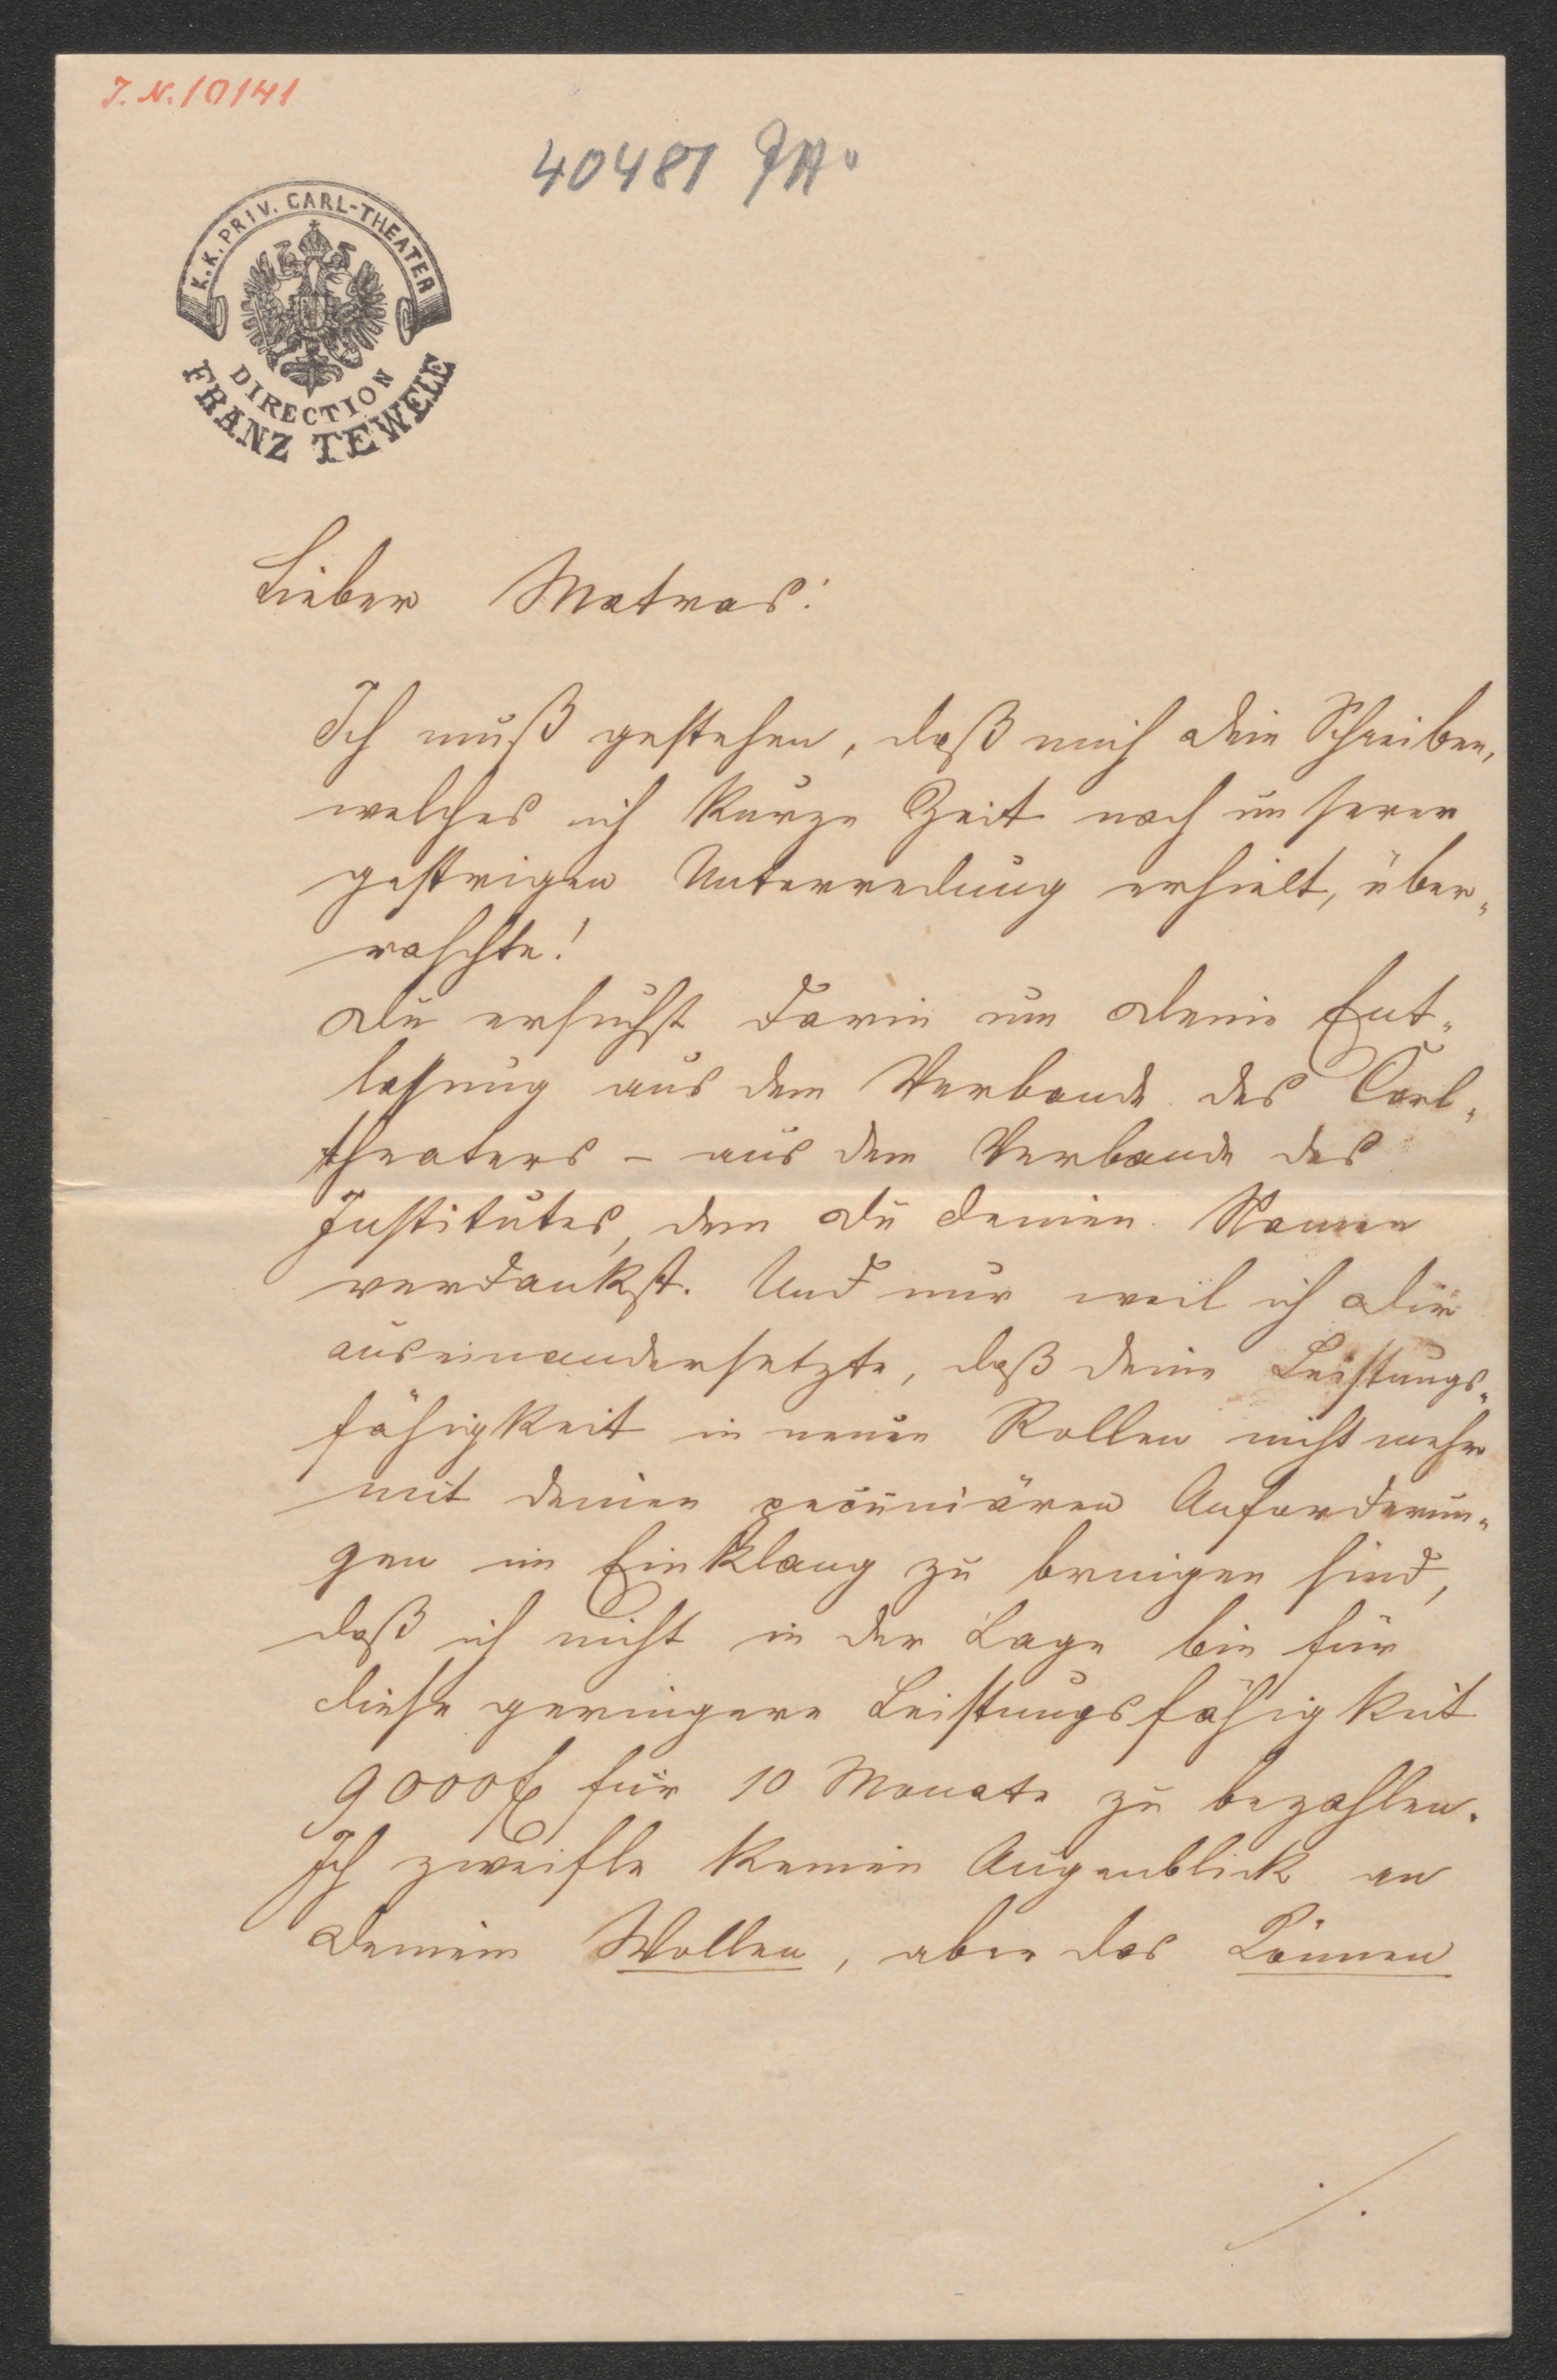 J. N. 10141
40487 JA.
K. K. PRIV. CARL-THEATER
DIRECTION
FRANZ TEWELE
Lieber Matras!
Ich muß gestehen, daß mich Dein Schreiben,
welches ich kurze Zeit nach unserer
gestrigen Unterredung erhielt, über„
raschte!
Du ersuchst darin um Deine Ent„
lassung aus dem Verbande des Carl„
theaters – aus dem Verbande des
Institutes, dem Du deinen Namen
verdankst. Und nur weil ich Dir
auseinandersetzte, daß deine Leistungs„
fähigkeit in neuen Rollen nicht mehr
mit deinen pecuniären Anforderun„
gen im Einklang zu bringen sind,
daß ich nicht in der Lage bin für
diese geringere Leistungsfähigkeit
9000 fl für 10 Monate zu bezahlen.
Ich zweifle keinen Augenblick an
Deinem Wollen, aber das Können
./.